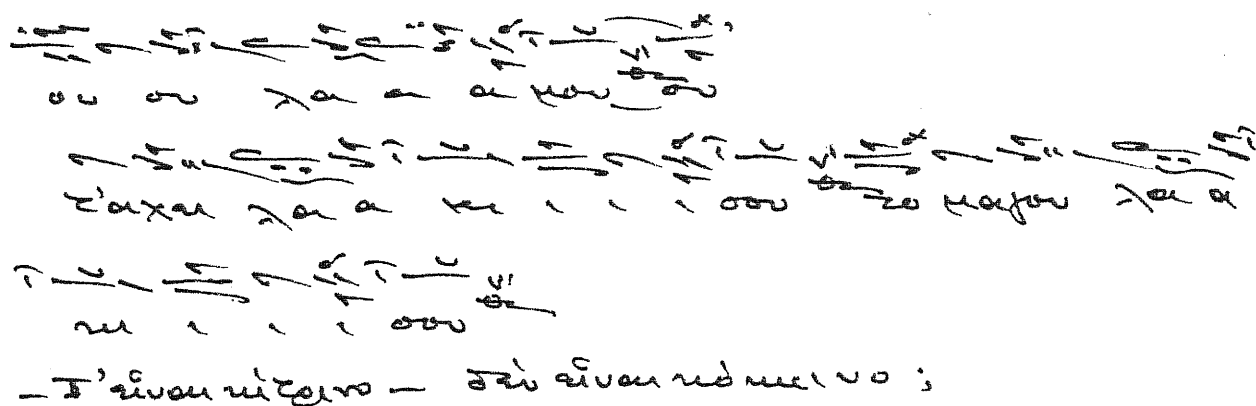 ου ου λα α α μου_ου
τ'αχει λα α κι ι ι ι σου το μαγου λα α
κι ι ι ι σου
– Τ'εἶναι κίτρινο – δέν εἶναι κόκκινο ;